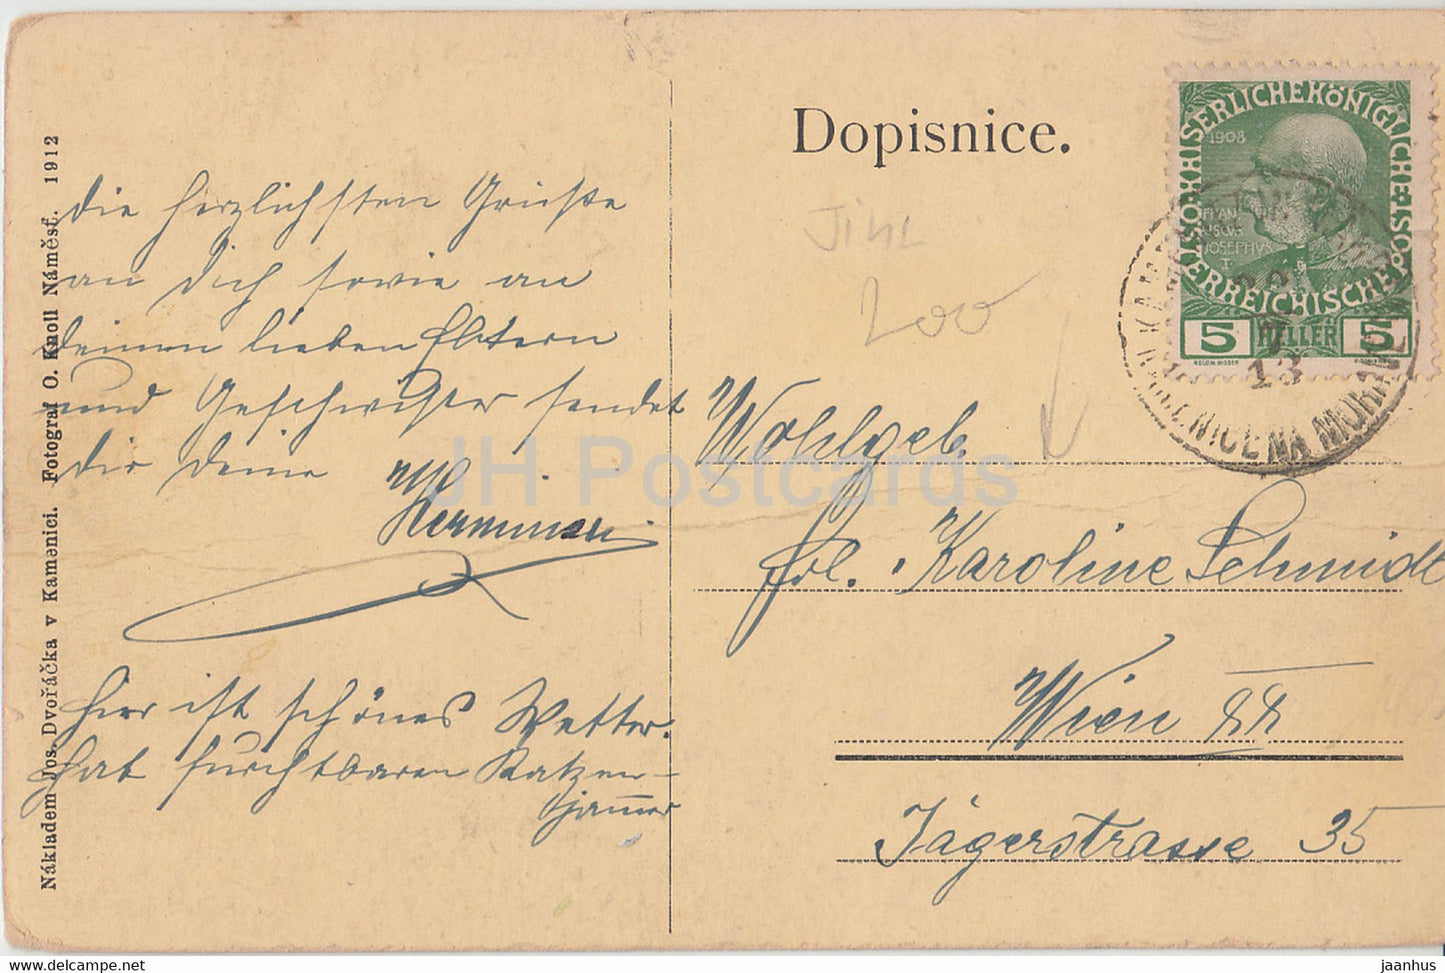 Dopisnice.
Die herzlichsten Grüße
an Dich sowie an
deinen lieben Eltern
und Geschwister sendet
dir deine
Hier ist schönes Wetter.
Hab furchtbaren Katzen-
jammer
Wohlgeb.
Frl. Karoline Schmidt
Wien XX
Jägerstrasse 35
Jihl
200
Nákladem Jos. Dvořáčka v Kamenici. Fotograf O. Knoll Náměšť. 1912
KAISERLICHE KÖNIGLICHE
ÖSTERREICHISCHE
1908
FRANCISCVS
IOSEPHVS
I
5 HELLER 5
13
JH Postcards
www.delcampe.net
jaanhus